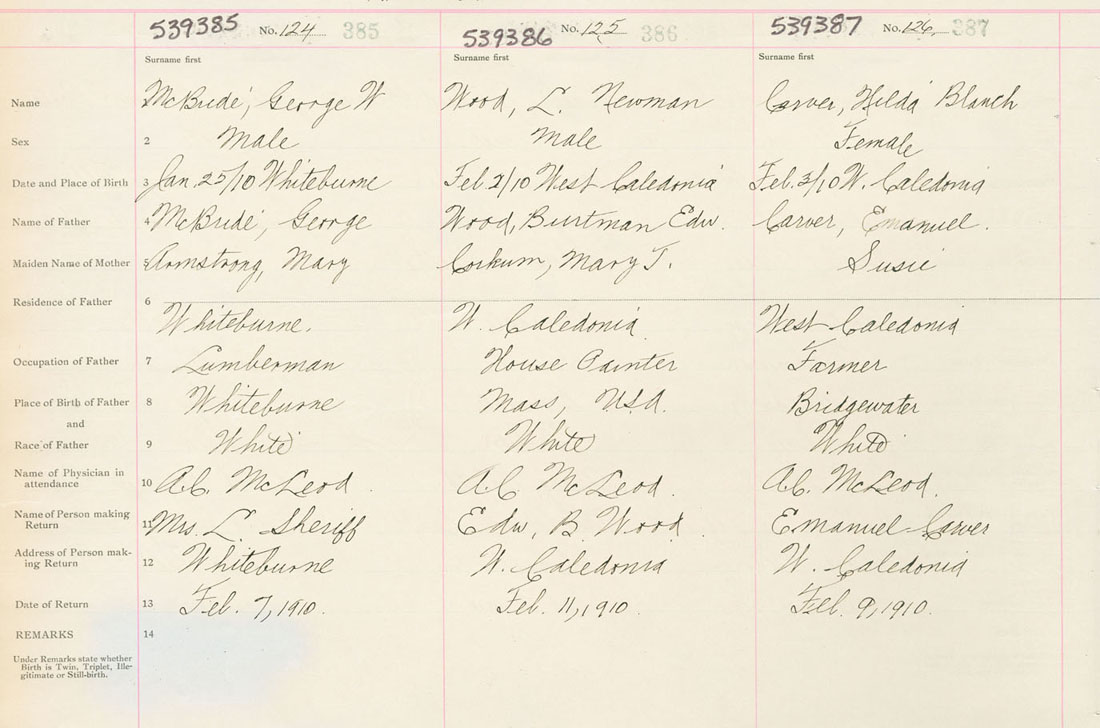 539385 No. 124 385 539386 No. 125 386 539387 No. 126 387
Surname first Surname first Surname first
Name McBride, George W Wood, L. Newman Carver, Hilda Blanch
Sex 2 Male Male Female
Date and Place of Birth 3 Jan. 25/10 Whiteburne Feb 2/10 West Caledonia Feb. 3/10 W. Caledonia
Name of Father 4 McBride, George Wood, Burtman Edw. Carver, Emanuel.
Maiden Name of Mother 5 Armstrong, Mary Corkum, Mary J. Susie
Residence of Father 6
Whiteburne. W. Caledonia West Caledonia
Occupation of Father 7 Lumberman House Painter Farmer
Place of Birth of Father 8 Whiteburne Mass, USA. Bridgewater
and
Race of Father 9 White White White
Name of Physician in
attendance 10 A.C. McLeod. A.C McLeod. A.C. McLeod.
Name of Person making
Return 11 Mrs. L. Sheriff Edw, B. Wood. Emanuel Carver
Address of Person mak-
ing Return 12 Whiteburne W. Caledonia W. Caledonia
Date of Return 13 Feb. 7, 1910. Feb. 11, 1910. Feb. 9, 1910.
REMARKS 14
Under Remarks state whether
Birth is Twin, Triplet, Ille-
gitimate or Still-birth.